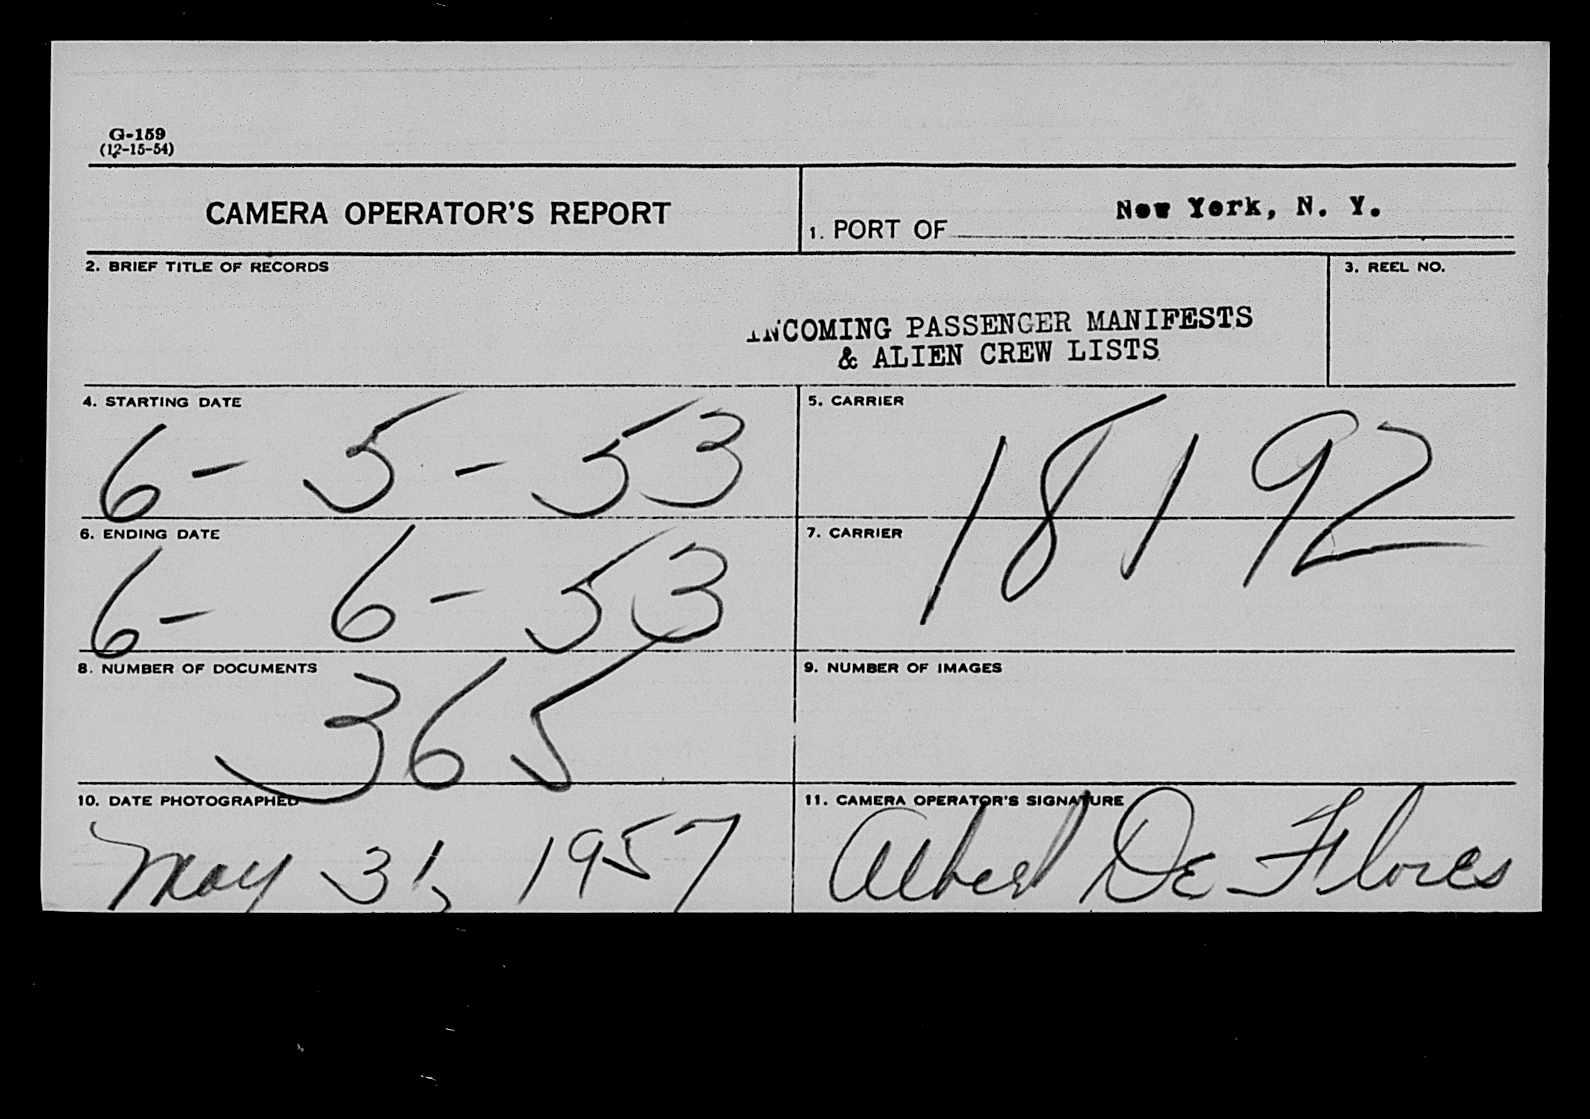 G-159
(12-15-54)
CAMERA OPERATOR'S REPORT
1. PORT OF New York, N. Y.
2. BRIEF TITLE OF RECORDS
3. REEL NO.
INCOMING PASSENGER MANIFESTS
& ALIEN CREW LISTS
4. STARTING DATE
6- 5-53
5. CARRIER
18192
6. ENDING DATE
6- 6-53
7. CARRIER
8. NUMBER OF DOCUMENTS
365
9. NUMBER OF IMAGES
10. DATE PHOTOGRAPHED
May 31, 1957
11. CAMERA OPERATOR'S SIGNATURE
Albert De Flores